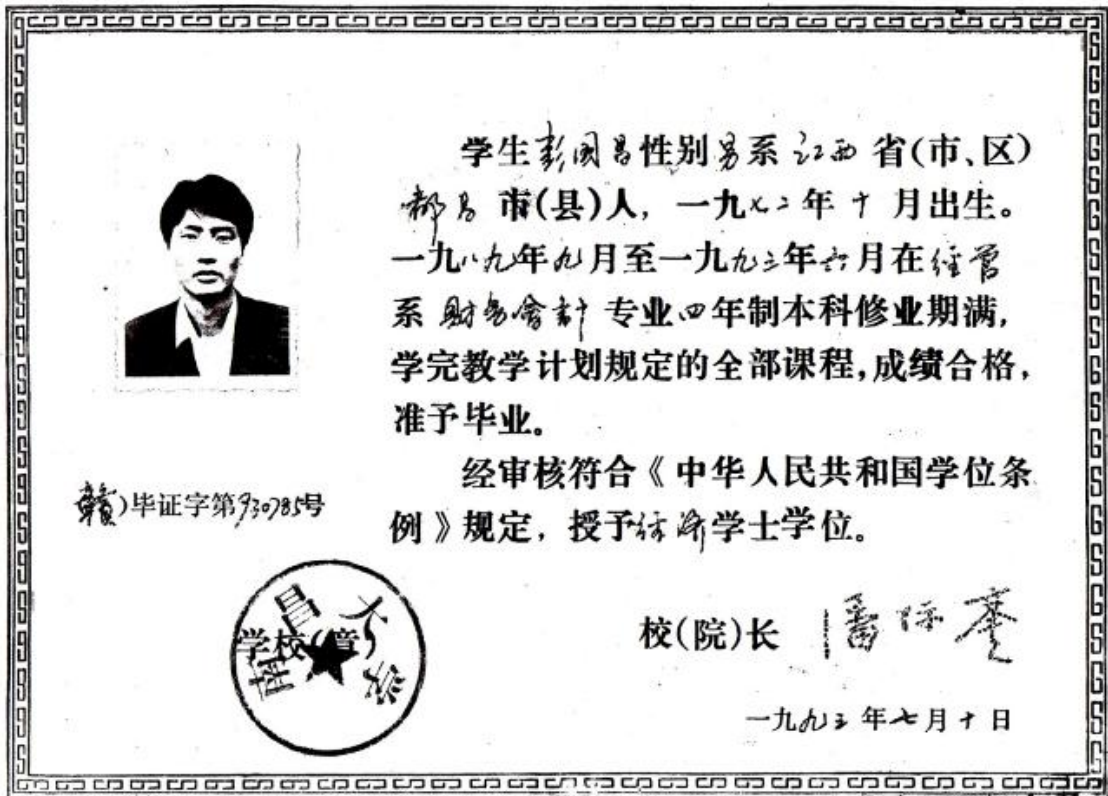 学生彭国昌性别男系江西省(市、区)
都昌市(县)人，一九七二年十月出生。
一九八九年九月至一九九三年六月在经管
系财务會计专业四年制本科修业期满，
学完教学计划规定的全部课程，成绩合格，
准予毕业。
经审核符合《中华人民共和国学位条
例》规定，授予经济学士学位。
赣)毕证字第930785号
学校(章)
南昌大学
校(院)长 潘际銮
一九九三年七月十日